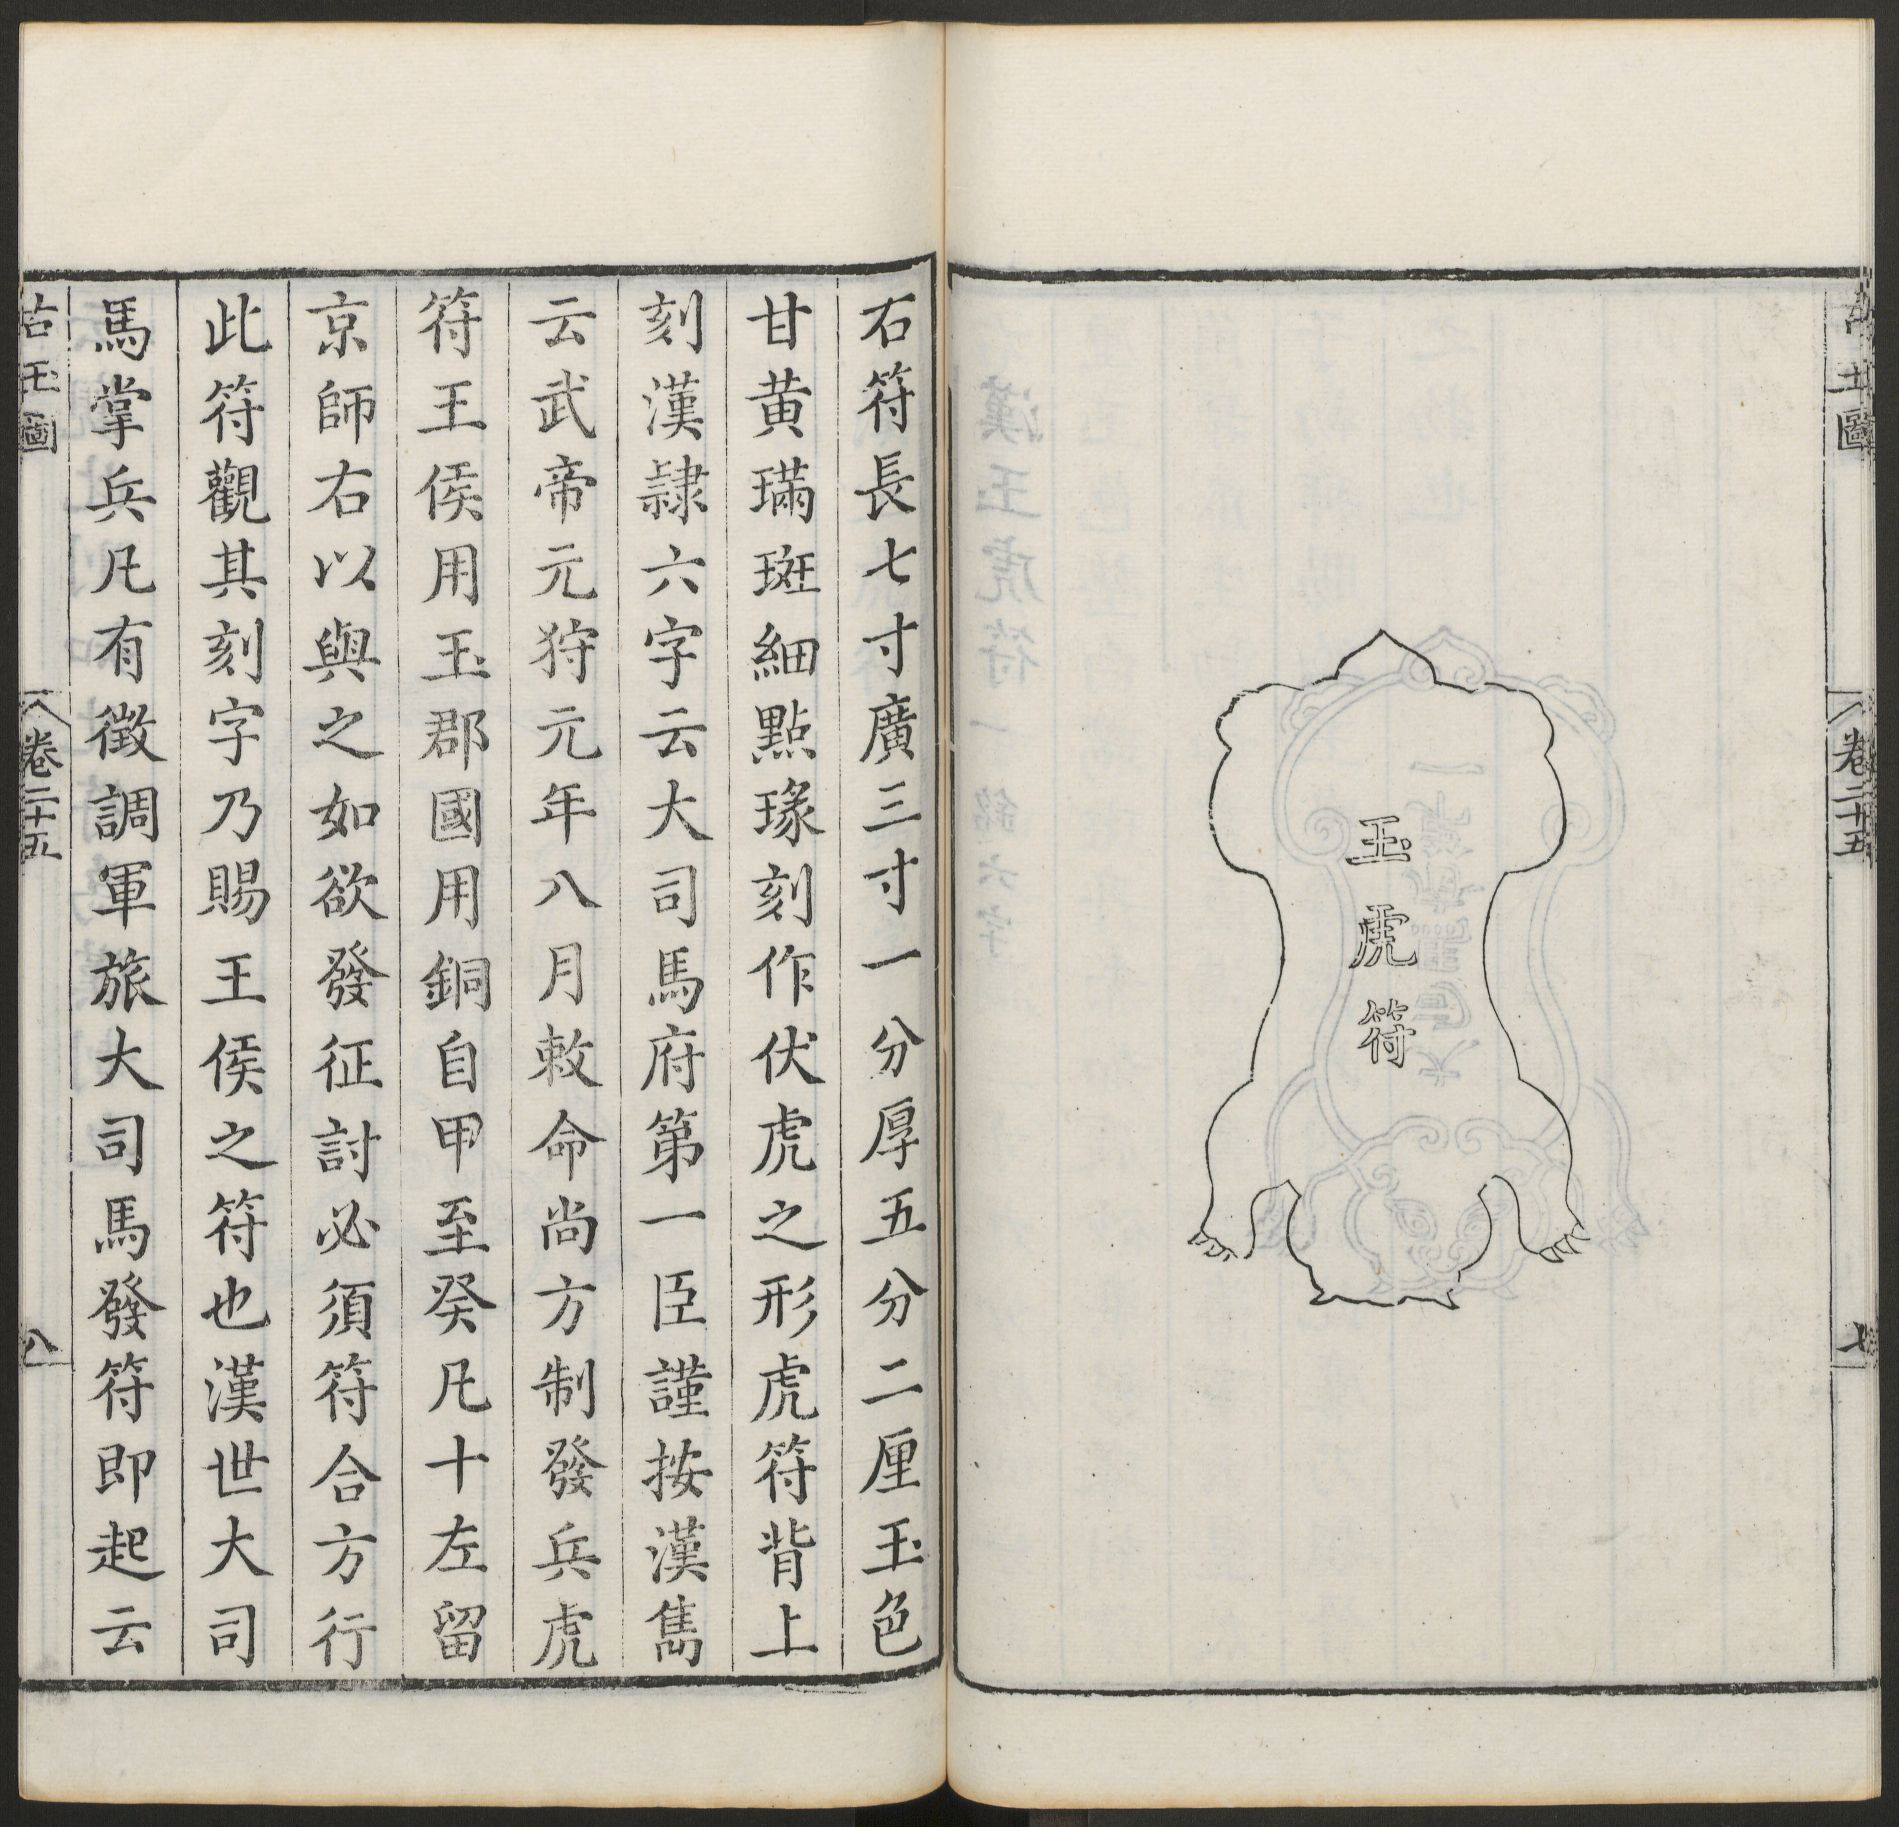 古玉圖
卷二十五
七
玉虎符
右符長七寸廣三寸一分厚五分二厘玉色
甘黃璊斑細點瑑刻作伏虎之形虎符背上
刻漢隷六字云大司馬府第一臣謹按漢雋
云武帝元狩元年八月敕命尚方制發兵虎
符王侯用玉郡國用銅自甲至癸凡十左留
京師右以與之如欲發征討必須符合方行
此符觀其刻字乃賜王侯之符也漢世大司
馬掌兵凡有徵調軍旅大司馬發符即起云
古玉圖
卷二十五
八